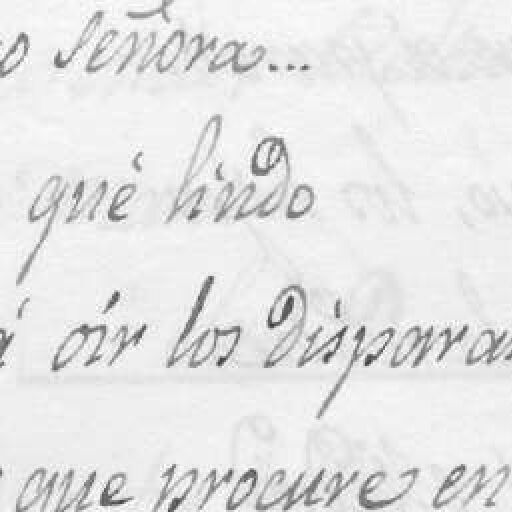 o señora...
qué lindo
á oír los dispara
que procure en